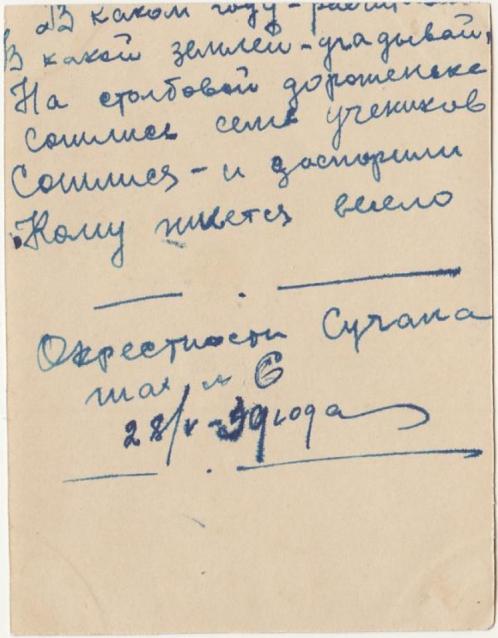 В каком году - рассчи
В какой землей - угадывай,
На столбовой дороженьке
Сошлись семь учеников
Сошлися - и заспорили
Кому живется весело
Окрестности Сучана
шах № 6
28/V - 39 года